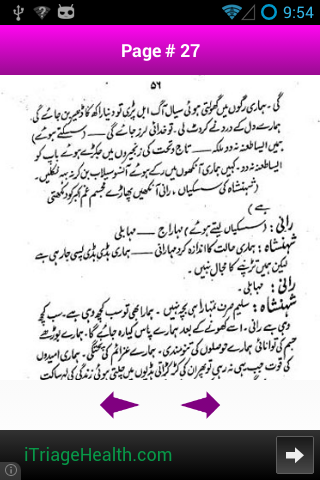 9:54
Page # 27
۵۶
گی - ہماری رگوں میں کھولتی ہوئی سیال آگ ابل پڑی تو دنیا راکھ کا ڈھیر بن جائے گی.
ہمارے دل کے درد نے کروٹ لی - تو خدائی لرز جائے گی — (سسکتے ہوئے)
ہمیں ایسا طعنہ نہ دو ملکہ — تاج و تخت کی زنجیروں میں جکڑے ہوئے باپ کو
ایسا طعنہ نہ دو - کہیں ہماری آنکھوں میں رکے ہوئے آنسو سیلاب بن کر نہ بہہ نکلیں -
(شہنشاہ کی سسکیاں ، رانی آنکھیں پھاڑے مجسم غم اکبر کو دیکھتی
ہے)
رانی : (سسکیاں لیتے ہوئے) مہاراج — مہابلی
شہنشاہ : ہماری حالت کا اندازہ کرو مہارانی — ہماری ہڈی ہڈی پسی جا رہی ہے
لیکن ہمیں تڑپنے کی مجال نہیں -
رانی : مہابلی -
شہنشاہ : سلیم صرف تمہارا ہی بچہ نہیں - ہمارا بھی تو سب کچھ وہی ہے - سب کچھ
وہی ہے رانی - اسے کھونے کے بعد ہمارے پاس کیا رہ جائے گا - ہمارے بوڑھے
جسم کی توانائی ہمارے حوصلوں کی تنومندی - ہمارے عزائم کی پختگی - ہماری امیدوں
کی قوت جب یہی نہ رہی تو پھر ان کی کڑکڑاتی ہڈیوں میں چلتی ہوئی زندگی کی
iTriageHealth.com